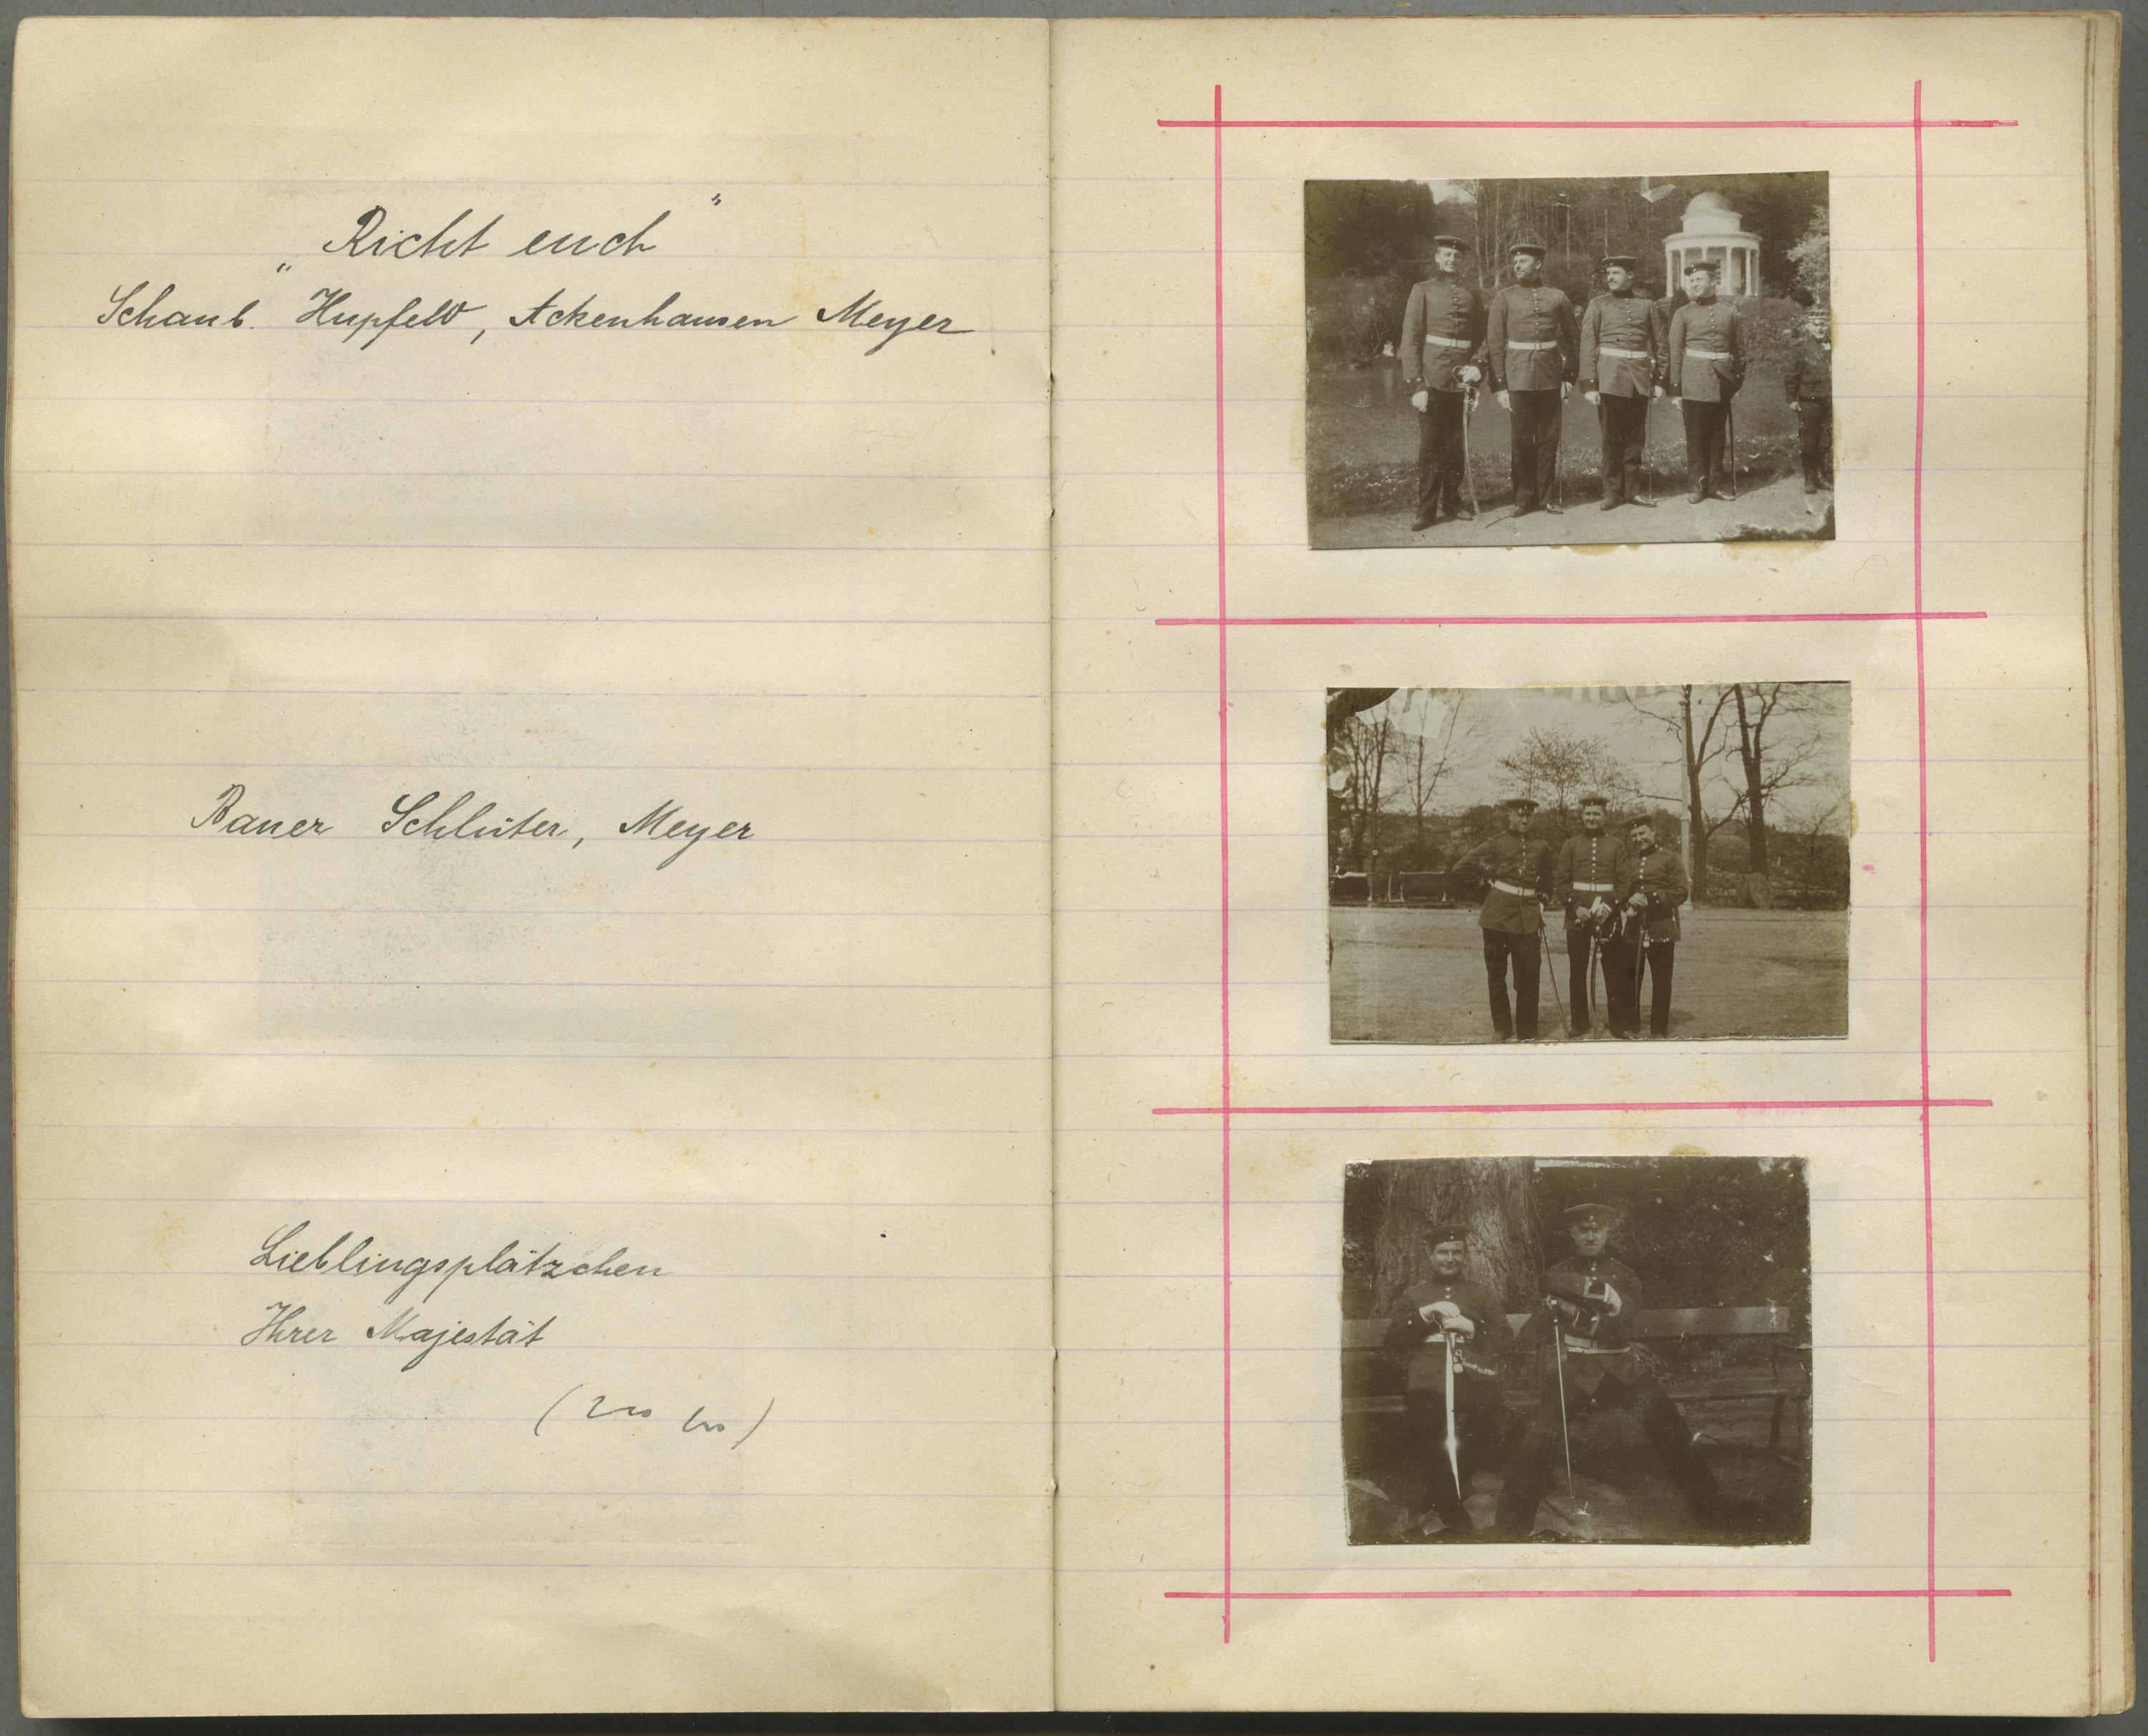 „Richt euch"
Schaub. Hupfeld, Ackenhausen Meyer
Bauer Schlüter, Meyer
Lieblingsplätzchen
Ihrer Majestät